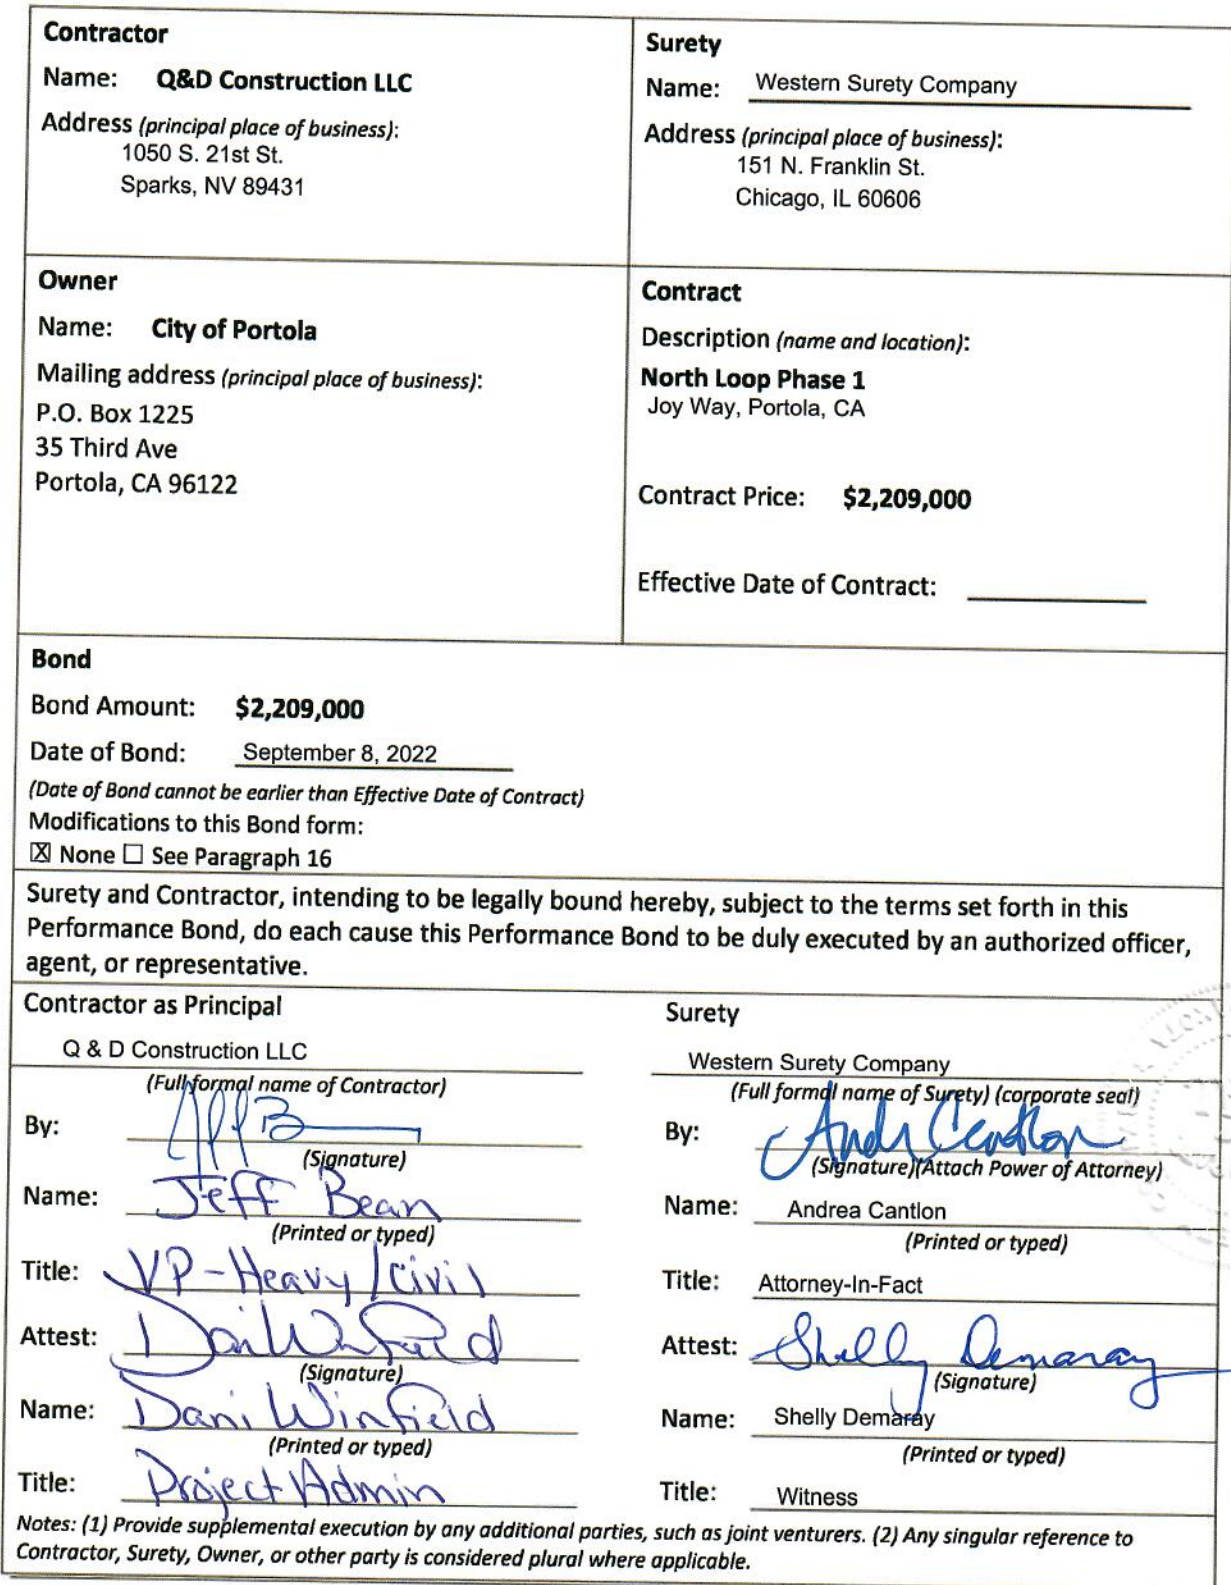 Contractor
Name: Q&D Construction LLC
Address (principal place of business):
1050 S. 21st St.
Sparks, NV 89431
Surety
Name: Western Surety Company
Address (principal place of business):
151 N. Franklin St.
Chicago, IL 60606
Owner
Name: City of Portola
Mailing address (principal place of business):
P.O. Box 1225
35 Third Ave
Portola, CA 96122
Contract
Description (name and location):
North Loop Phase 1
Joy Way, Portola, CA
Contract Price: $2,209,000
Effective Date of Contract:
Bond
Bond Amount: $2,209,000
Date of Bond: September 8, 2022
(Date of Bond cannot be earlier than Effective Date of Contract)
Modifications to this Bond form:
☒ None ☐ See Paragraph 16
Surety and Contractor, intending to be legally bound hereby, subject to the terms set forth in this
Performance Bond, do each cause this Performance Bond to be duly executed by an authorized officer,
agent, or representative.
Contractor as Principal
Q & D Construction LLC
(Full formal name of Contractor)
By:
(Signature)
Name: Jeff Bean
(Printed or typed)
Title: VP-Heavy/Civil
Attest: Dani Winfield
(Signature)
Name: Dani Winfield
(Printed or typed)
Title: Project Admin
Surety
Western Surety Company
(Full formal name of Surety) (corporate seal)
By: Andrea Cantlon
(Signature)(Attach Power of Attorney)
Name: Andrea Cantlon
(Printed or typed)
Title: Attorney-In-Fact
Attest: Shelly Demaray
(Signature)
Name: Shelly Demaray
(Printed or typed)
Title: Witness
Notes: (1) Provide supplemental execution by any additional parties, such as joint venturers. (2) Any singular reference to
Contractor, Surety, Owner, or other party is considered plural where applicable.